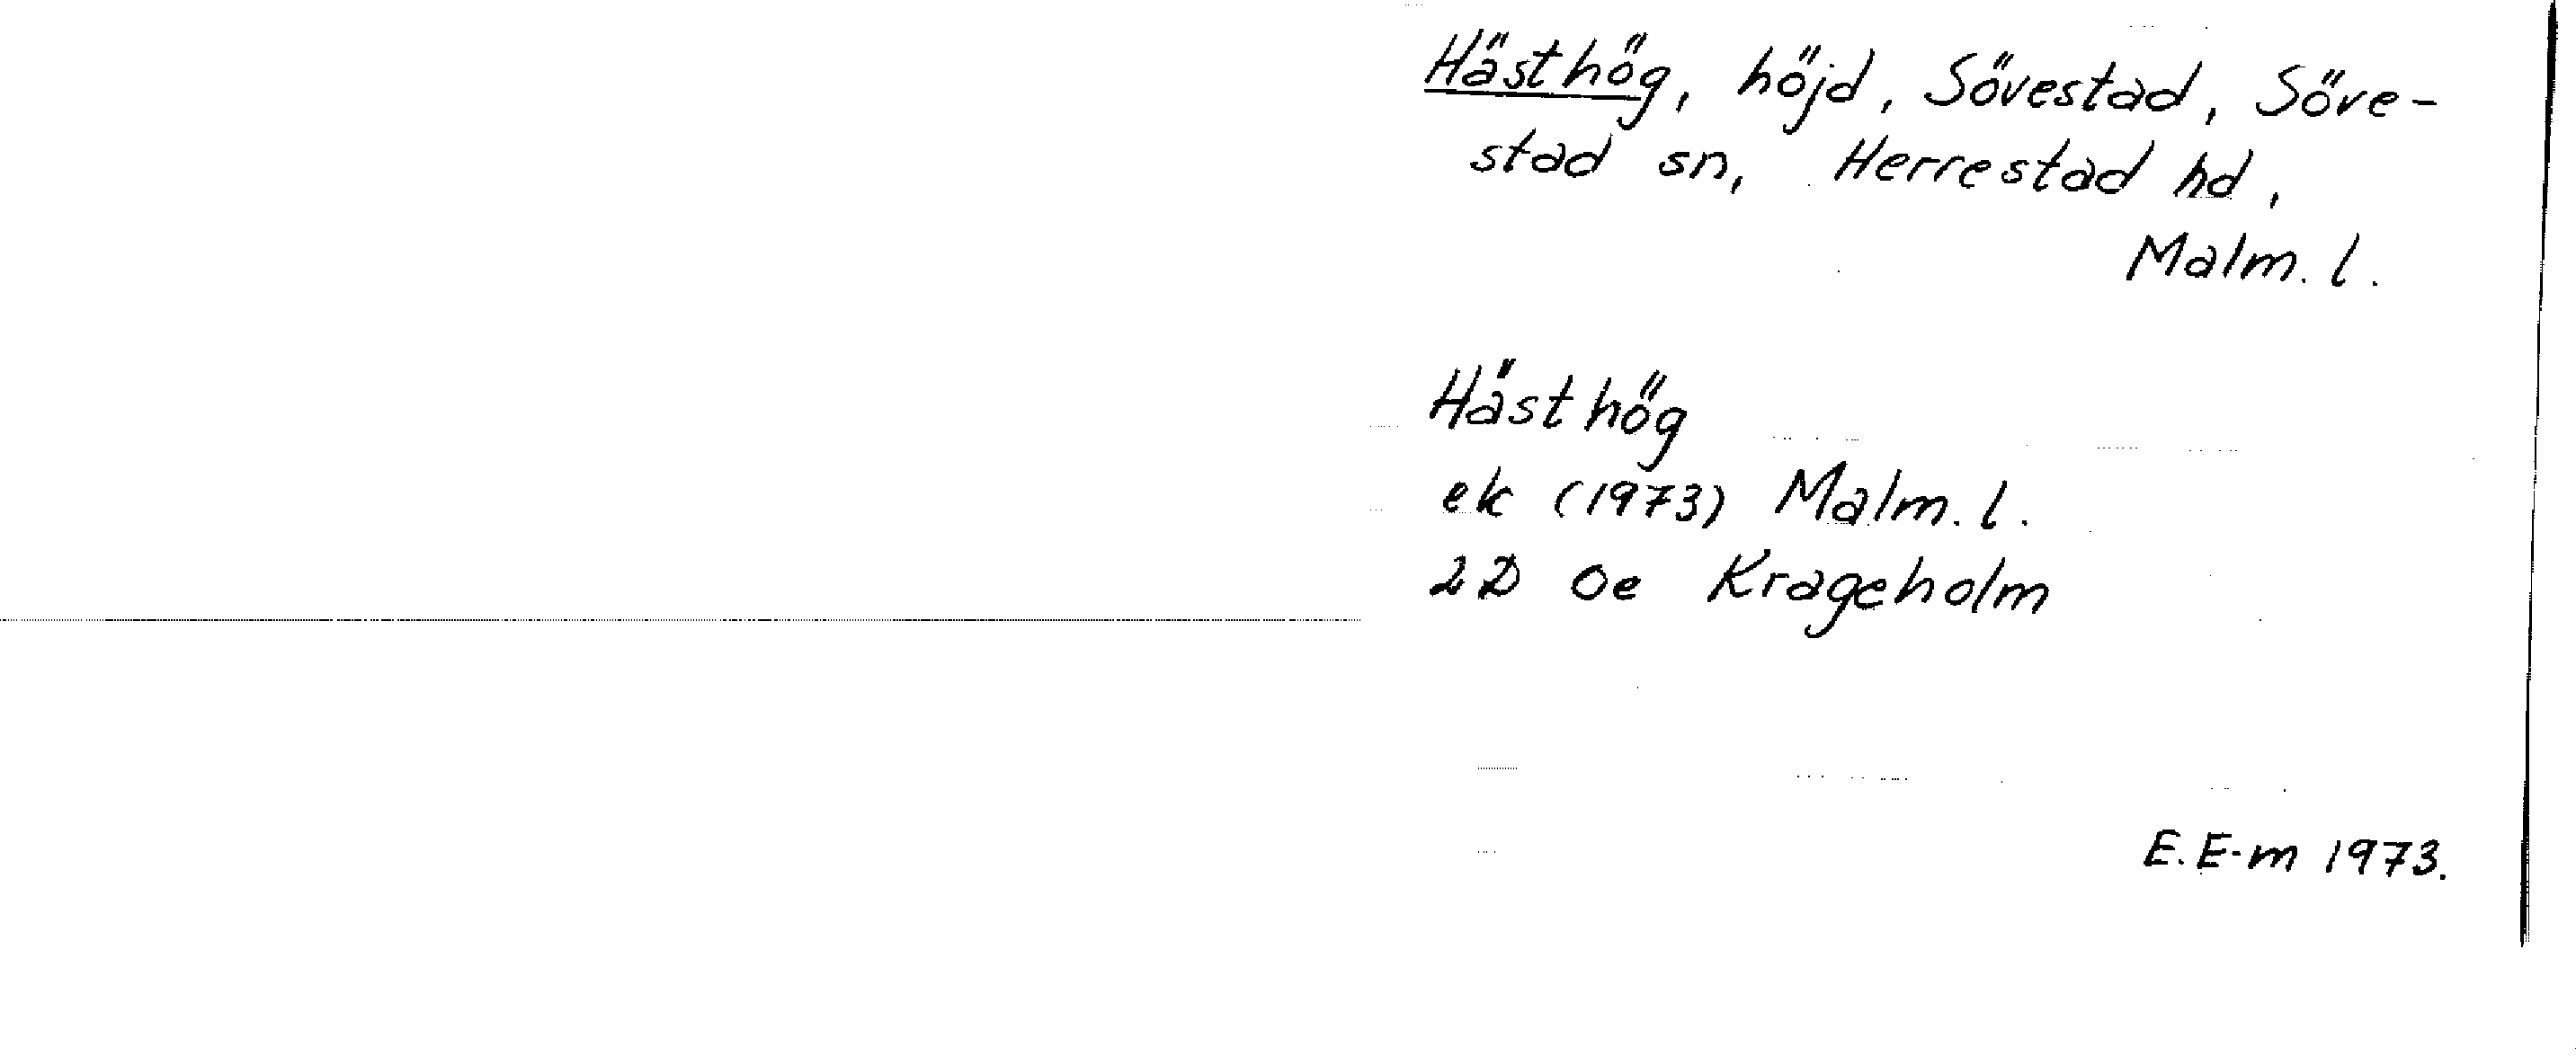 Hästhög, höjd, Sövestad, Söve-
stad sn, Herrestad hd,
Malm. l.
Hästhög
ek (1973) Malm. l.
2D Oe Krageholm
E. E-m 1973.